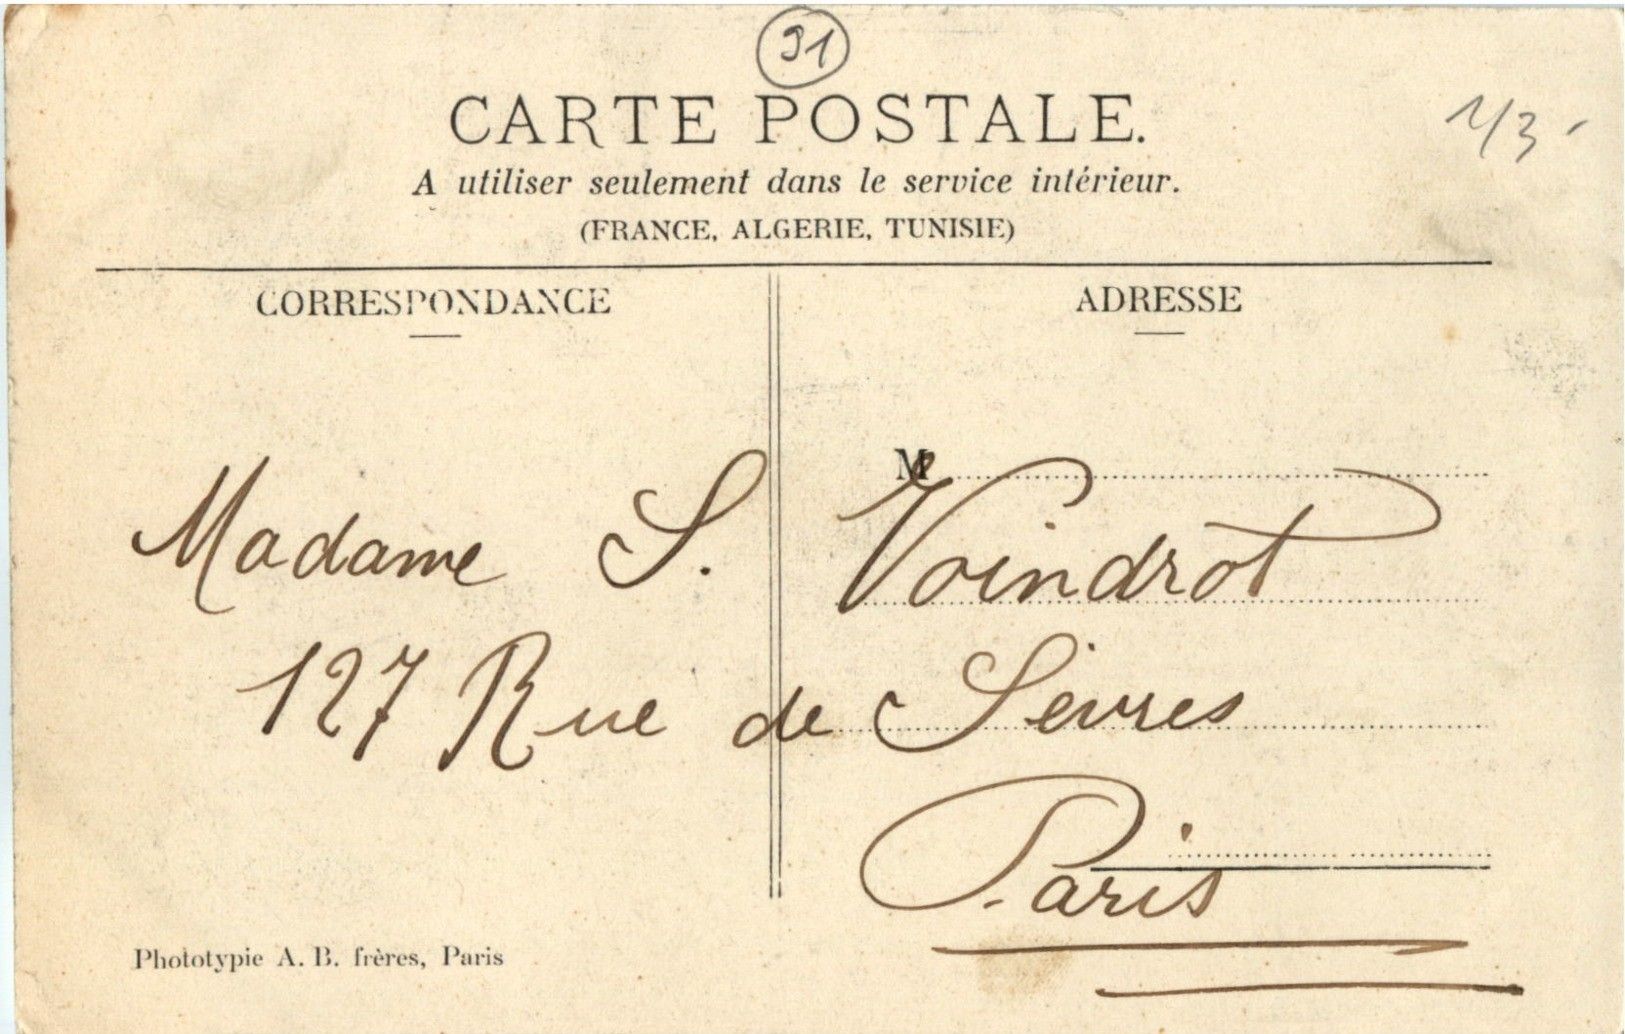 91
CARTE POSTALE.
1/3 -
A utiliser seulement dans le service intérieur.
(FRANCE, ALGERIE, TUNISIE)
CORRESPONDANCE
ADRESSE
M
Madame S. Voindrot
127 Rue de Sèvres
Paris
Phototypie A. B. frères, Paris